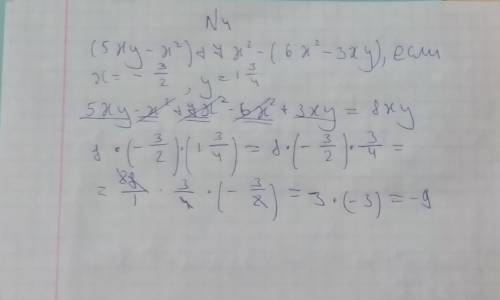 N4
(5xy - x²) + 7x² - (6x² - 3xy), если
x = - 3/2, y = 1 3/4
5xy - x² + 7x² - 6x² + 3xy = 8xy
8 · (- 3/2) · (1 3/4) = 8 · (- 3/2) · 3/4 =
= 8/1 · 3/4 · (- 3/2) = 3 · (-3) = -9